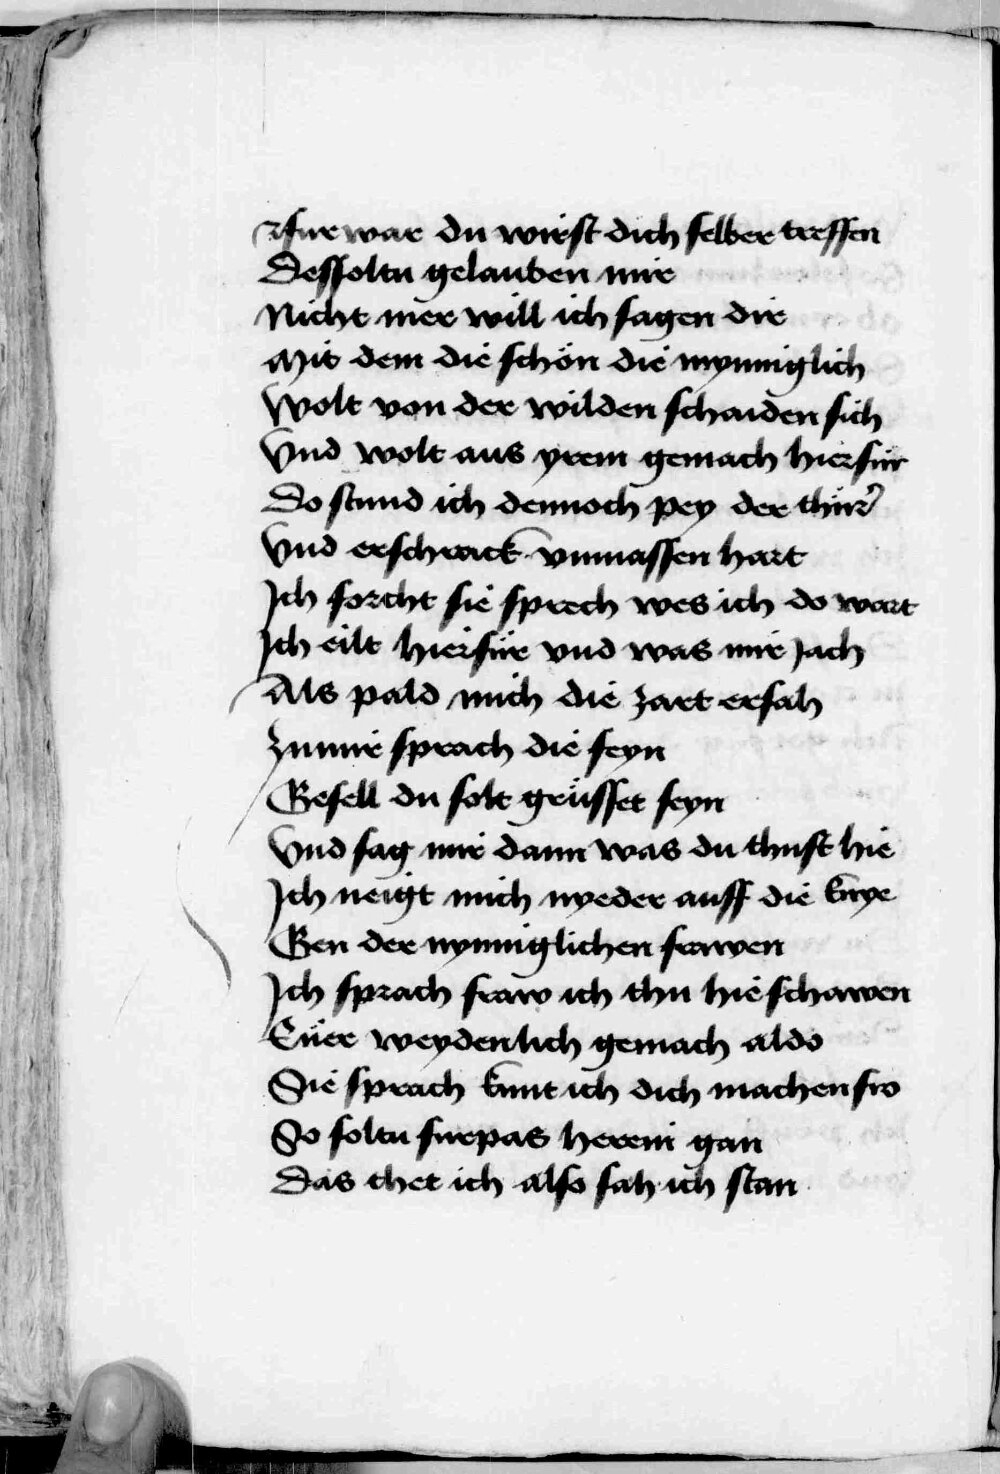 Ffurwar du wirst dich selber treffen
Dessoltu gelauben mir
Nicht mer will ich sagen dir
Mit dem die schön die mynniglich
Wolt von der wilden schaiden sich
Vnd wolt aus yrem gemach hierfür
Do stund ich dennoch pey der thür
Vnd erschrack vnmassen hart
Ich forcht sie sprech wes ich do wart
Ich eilt hierfür vnd was mir Jach
Als pald mich die zart ersah
Zu mir sprach die feyn
Gesell du solt grüsset seyn
Vnd sag mir dann was du thust hie
Ich neigt mich nyeder auff die knye
Gen der mynniglichen frawen
Ich sprach fraw ich thu hie schawen
Eüer weydenlich gemach aldo
Sie sprach kunt ich dich machen fro
So soltu furpas herein gan
Das thet ich also sah ich stan